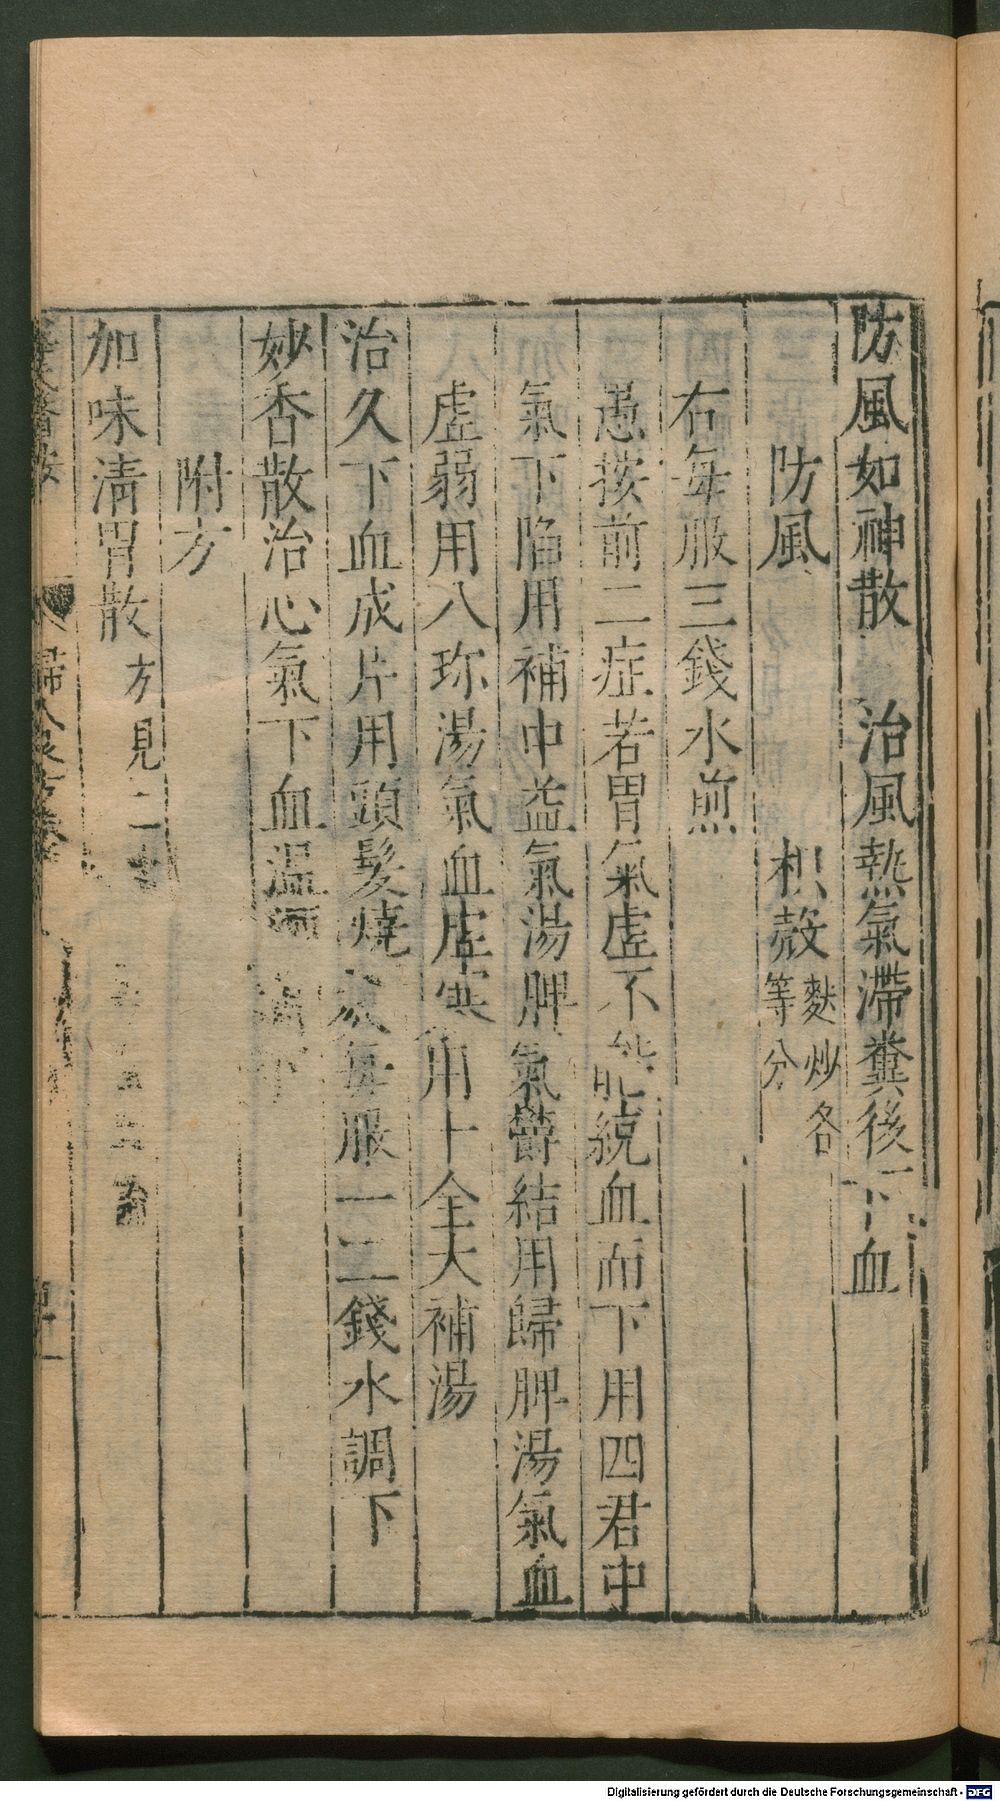 防風如神散　治風熱氣滯糞後下血
防風　枳殻麩炒各等分
右每服三錢水煎
愚按前二症若胃氣虛不能統血而下用四君中
氣下陷用補中益氣湯脾氣鬱結用歸脾湯氣血
虛弱用八珎湯氣血虛寒用十全大補湯
治久下血成片用頭髮燒灰每服一二錢水調下
妙香散治心氣下血溫酒調下
附方
加味淸胃散方見二十
薛氏醫按　婦人良方卷
Digitalisierung gefördert durch die Deutsche Forschungsgemeinschaft - DFG